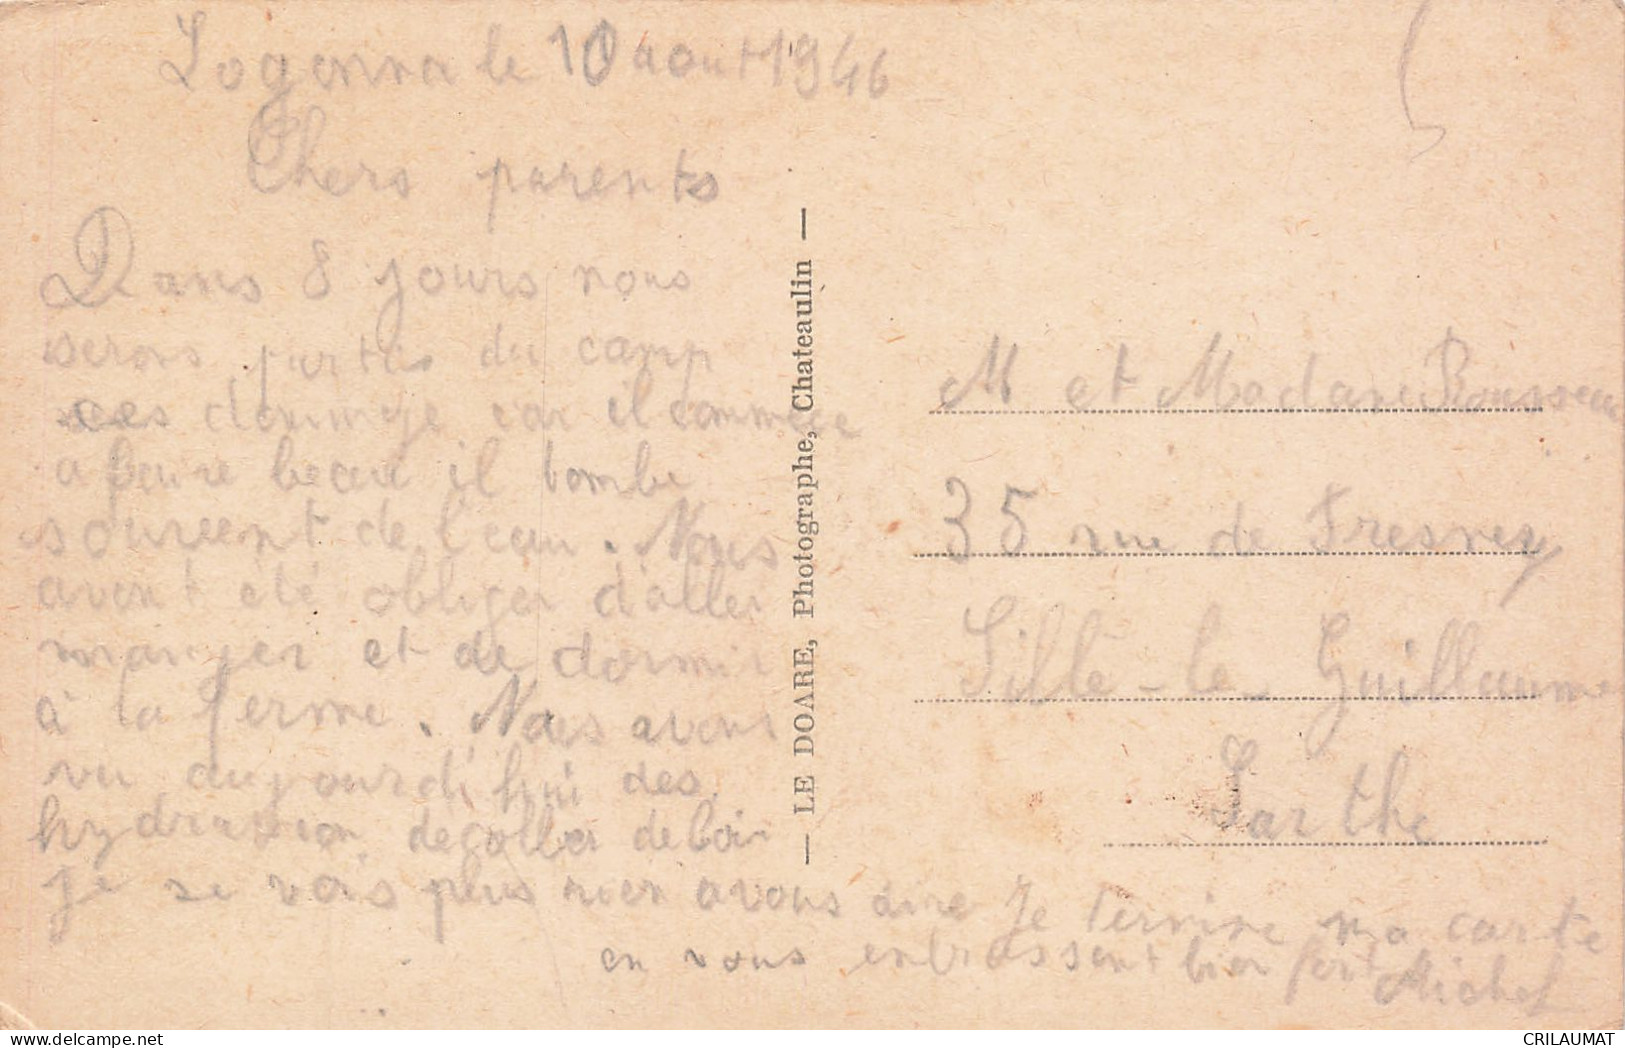 Logonna le 10 aout 1946
Chers parents
Dans 8 jours nous
serons partis du camp
ces dommage car il commece
a faire beau il tombe
souveent de l'eau. Nous
avont été obliger d'aller
manger et de dormir
à la ferme. Nous avons
vu aujourdi hui des
hydravion decoller de loin
Je ne vois plus rien avous dire Je termine ma carte
en vous enbrassent bien fort
Michel
M et Madame Rousseau
35 rue de Fresney
Sillé-le-Guillaume
Sarthe
— LE DOARE, Photographe, Chateaulin —
CRILAUMAT